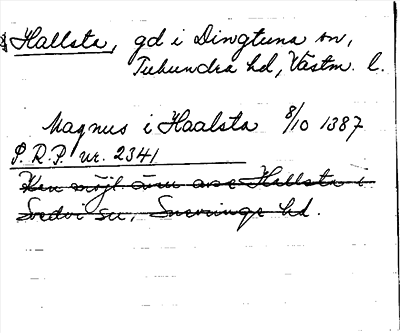 Hallsta, gd i Dingtuna sn,
Tuhundra hd, Västm. l.
Magnus i Haalsta 8/10 1387
P. R. P. nr. 2341
Kan möjl. även avse Hallsta i
Svedvi sn, Snevringe hd.